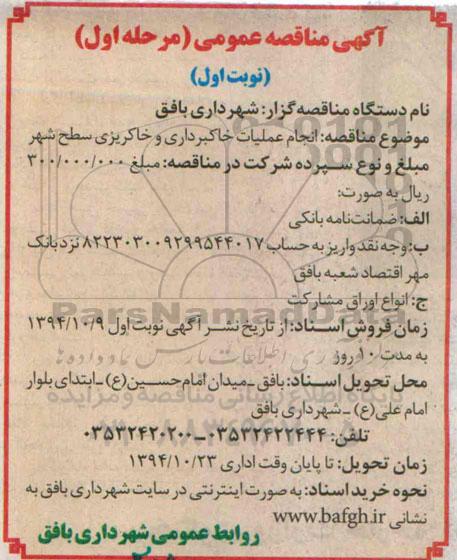 آگهی مناقصه عمومی (مرحله اول)
(نوبت اول)
نام دستگاه مناقصه‌گزار: شهرداری بافق
موضوع مناقصه: انجام عملیات خاکبرداری و خاکریزی سطح شهر
مبلغ و نوع سپرده شرکت در مناقصه: مبلغ ۳۰۰/۰۰۰/۰۰۰
ریال به صورت:
الف: ضمانت‌نامه بانکی
ب: وجه نقد واریز به حساب ۸۲۲۳۰۳۰۰۹۲۹۹۵۴۴۰۱۷ نزد بانک
مهر اقتصاد شعبه بافق
ج: انواع اوراق مشارکت
ParsNamadData
زمان فروش اسناد: از تاریخ نشر آگهی نوبت اول ۱۳۹۴/۱۰/۹
به مدت ۱۰ روز
محل تحویل اسناد: بافق ـ میدان امام حسین(ع) ـ ابتدای بلوار
امام علی(ع) ـ شهرداری بافق
تلفن: ۰۳۵۳۲۴۲۲۴۴۴ ـ ۰۳۵۳۲۴۲۰۲۰۰
زمان تحویل: تا پایان وقت اداری ۱۳۹۴/۱۰/۲۳
نحوه خرید اسناد: به صورت اینترنتی در سایت شهرداری بافق به
نشانی www.bafgh.ir
روابط عمومی شهرداری بافق